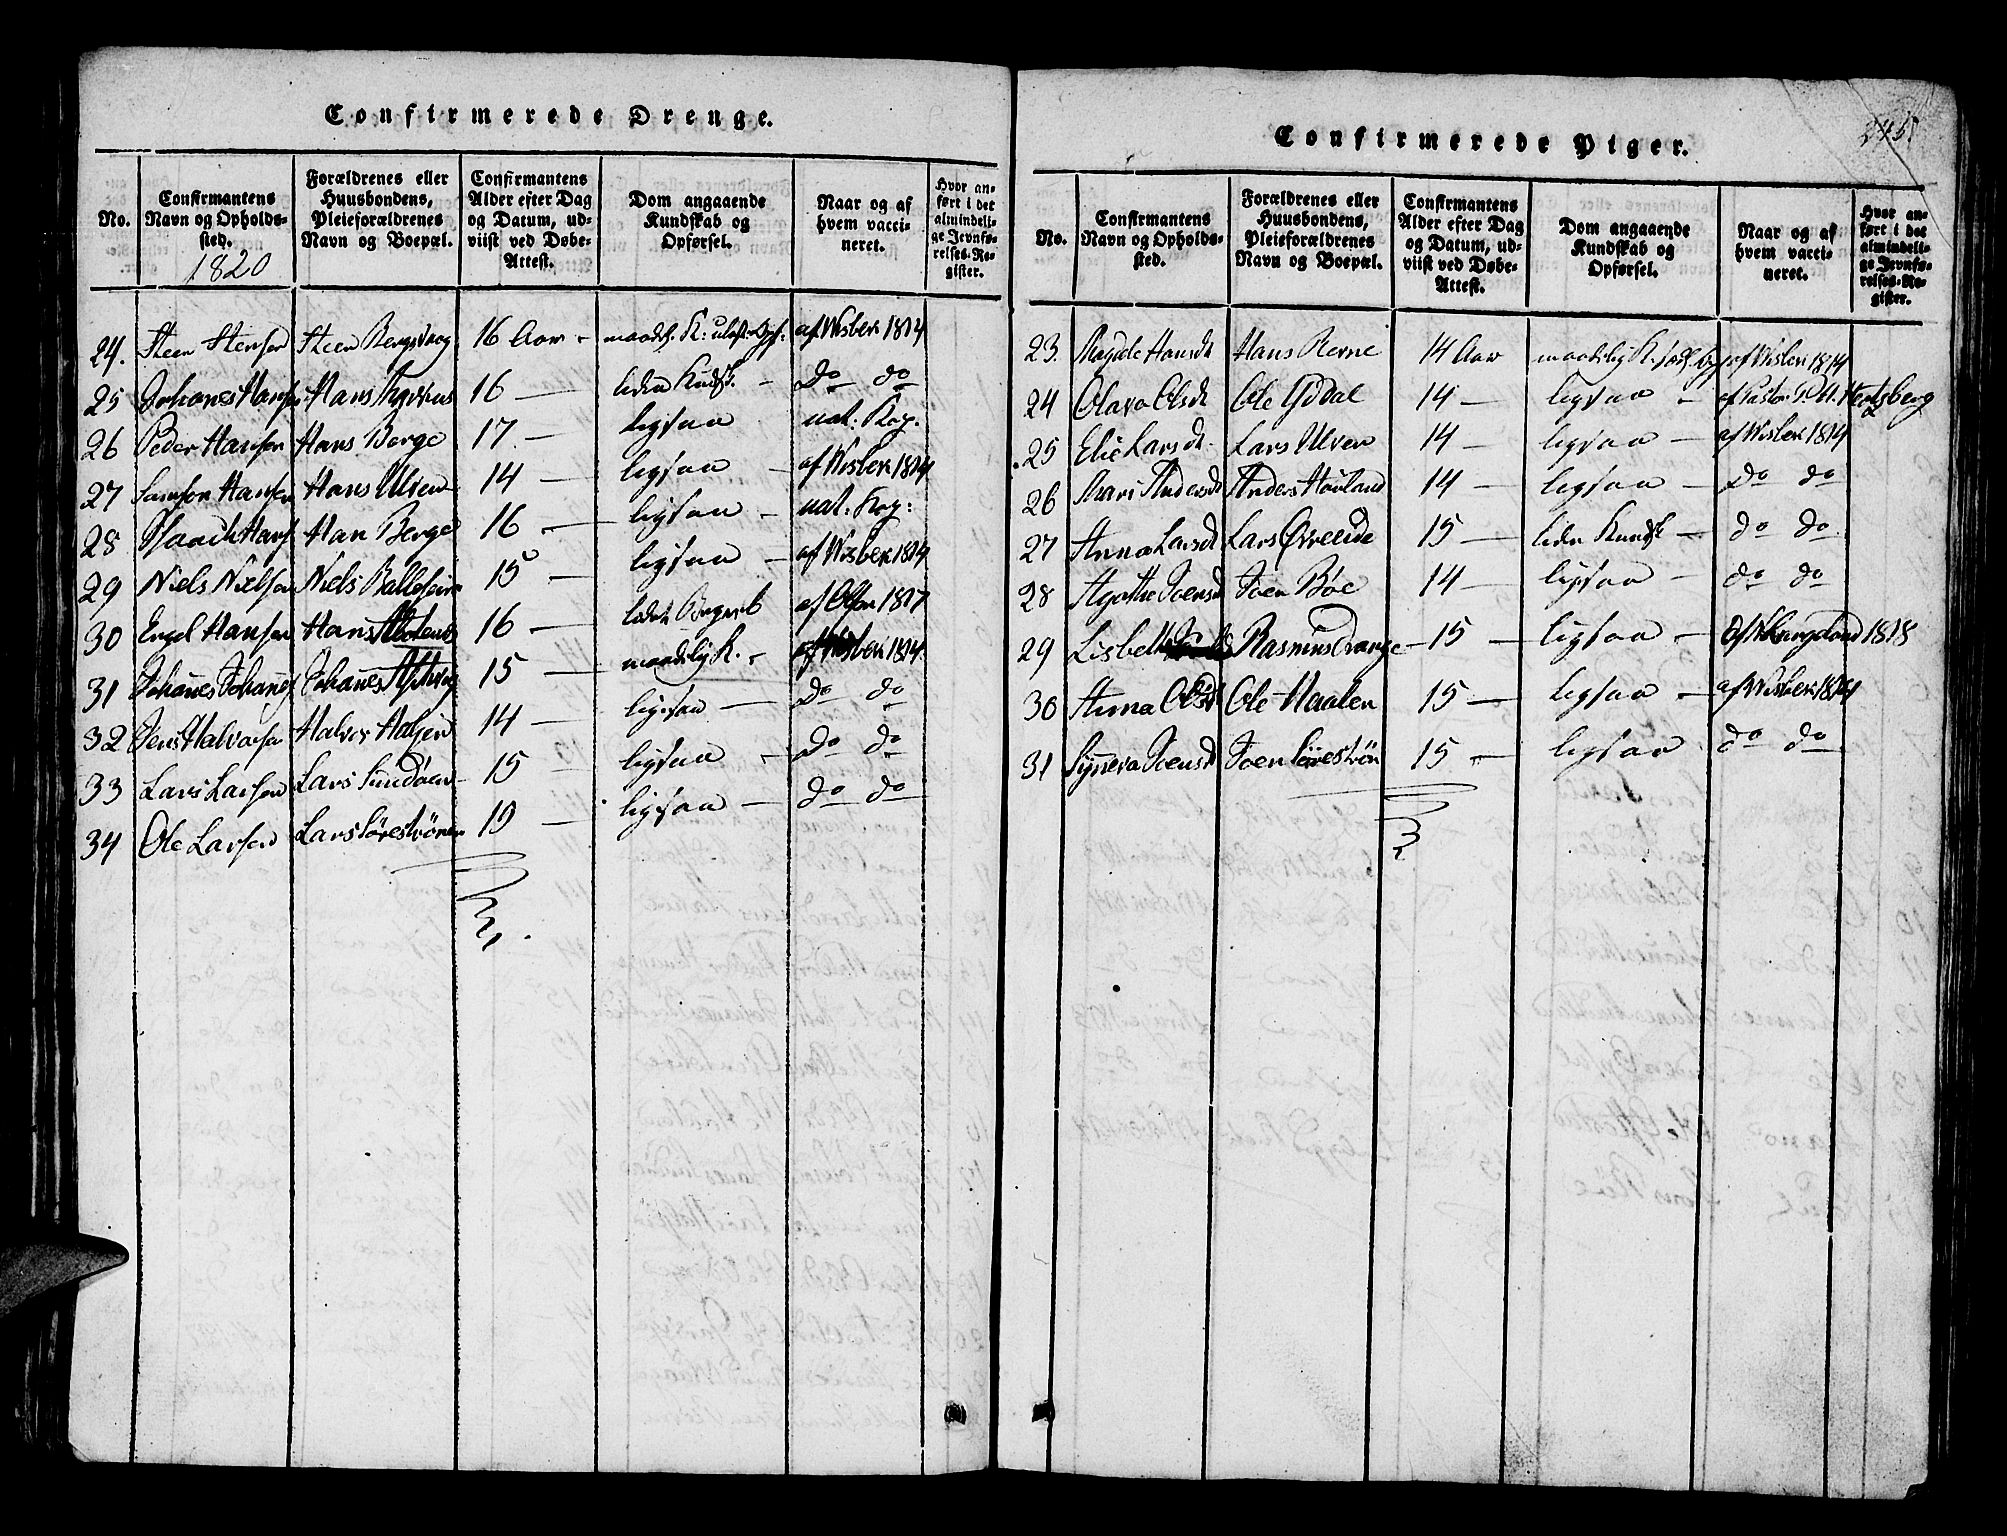 Confirmerede Drenge.
No.
Confirmantens Navn og Opholdssted.
Forældrenes eller Huusbondens, Pleieforældrenes Navn og Boepæl.
Confirmantens Alder efter Dag og Datum, udviist ved Døbe-Attest.
Dom angaaende Kundskab og Opførsel.
Naar og af hvem vaccineret.
Hvor anført i det almindelige Jevnførelses-Register.
1820
24. Steen Stensen Steen Bergsvaag 16 Aar - maadel. K: af Wisbek 1814
25 Johanes Hansen Hans 16 — liden Kundsk. — Do Do
26 Peder Hansen Hans Berge 17 — ligsaa nat. Kop.
27 Samson Hansen Hans Ulven 14 — ligsaa — af Wisbek 1814
28 Hans Han Berge 16 — ligsaa — nat. Kop:
29 Niels Nielsen Niels 15 — ligsaa — af Wisbek 1814
30 Engel Hansen Hans 16 — af Olsen 1817
31 Johanes Johanes Johanes 15 — maadelig K. - af Wisbek 1814
32 Jens Halvorsen Halvor 14 — ligsaa — Do Do
33 Lars Larsen Lars Sundøen 15 — ligsaa - Do Do
34 Ole Larsen Lars Sørestrønen 19 — ligsaa — Do Do
Confirmerede Piger.
245
No.
Confirmantens Navn og Opholdssted.
Forældrenes eller Huusbondens, Pleieforældrenes Navn og Boepæl.
Confirmantens Alder efter Dag og Datum, udviist ved Døbe-Attest.
Dom angaaende Kundskab og Opførsel.
Naar og af hvem vaccineret.
Hvor anført i det almindelige Jevnførelses-Register.
23. Hansdt Hans Revne 14 Aar maadelig K. af Wisbek 1814
24 Olava Olsdt Ole Yddal 14 — ligsaa - af Pastor Hertzberg
25 Elie Larsdt. Lars Ulven 14 — ligsaa — af Wisbek 1814
26 Mari Andersdt Anders Høvland 14 — ligsaa — Do Do
27 Anna Larsdt Lars Øvreeide 15 — liden Kundsk — do do
28 Agathe Joensdt Joen Bøe 14 — ligsaa — do do
29 Lisbeth Rasmus Drange 15 — ligsaa — af 1818
30 Anna Olsdt Ole Haalen 15 — ligsaa — af Wisbek 1814
31 Synneva Joensdt Joen Sørestrøn 15 — ligsaa do do